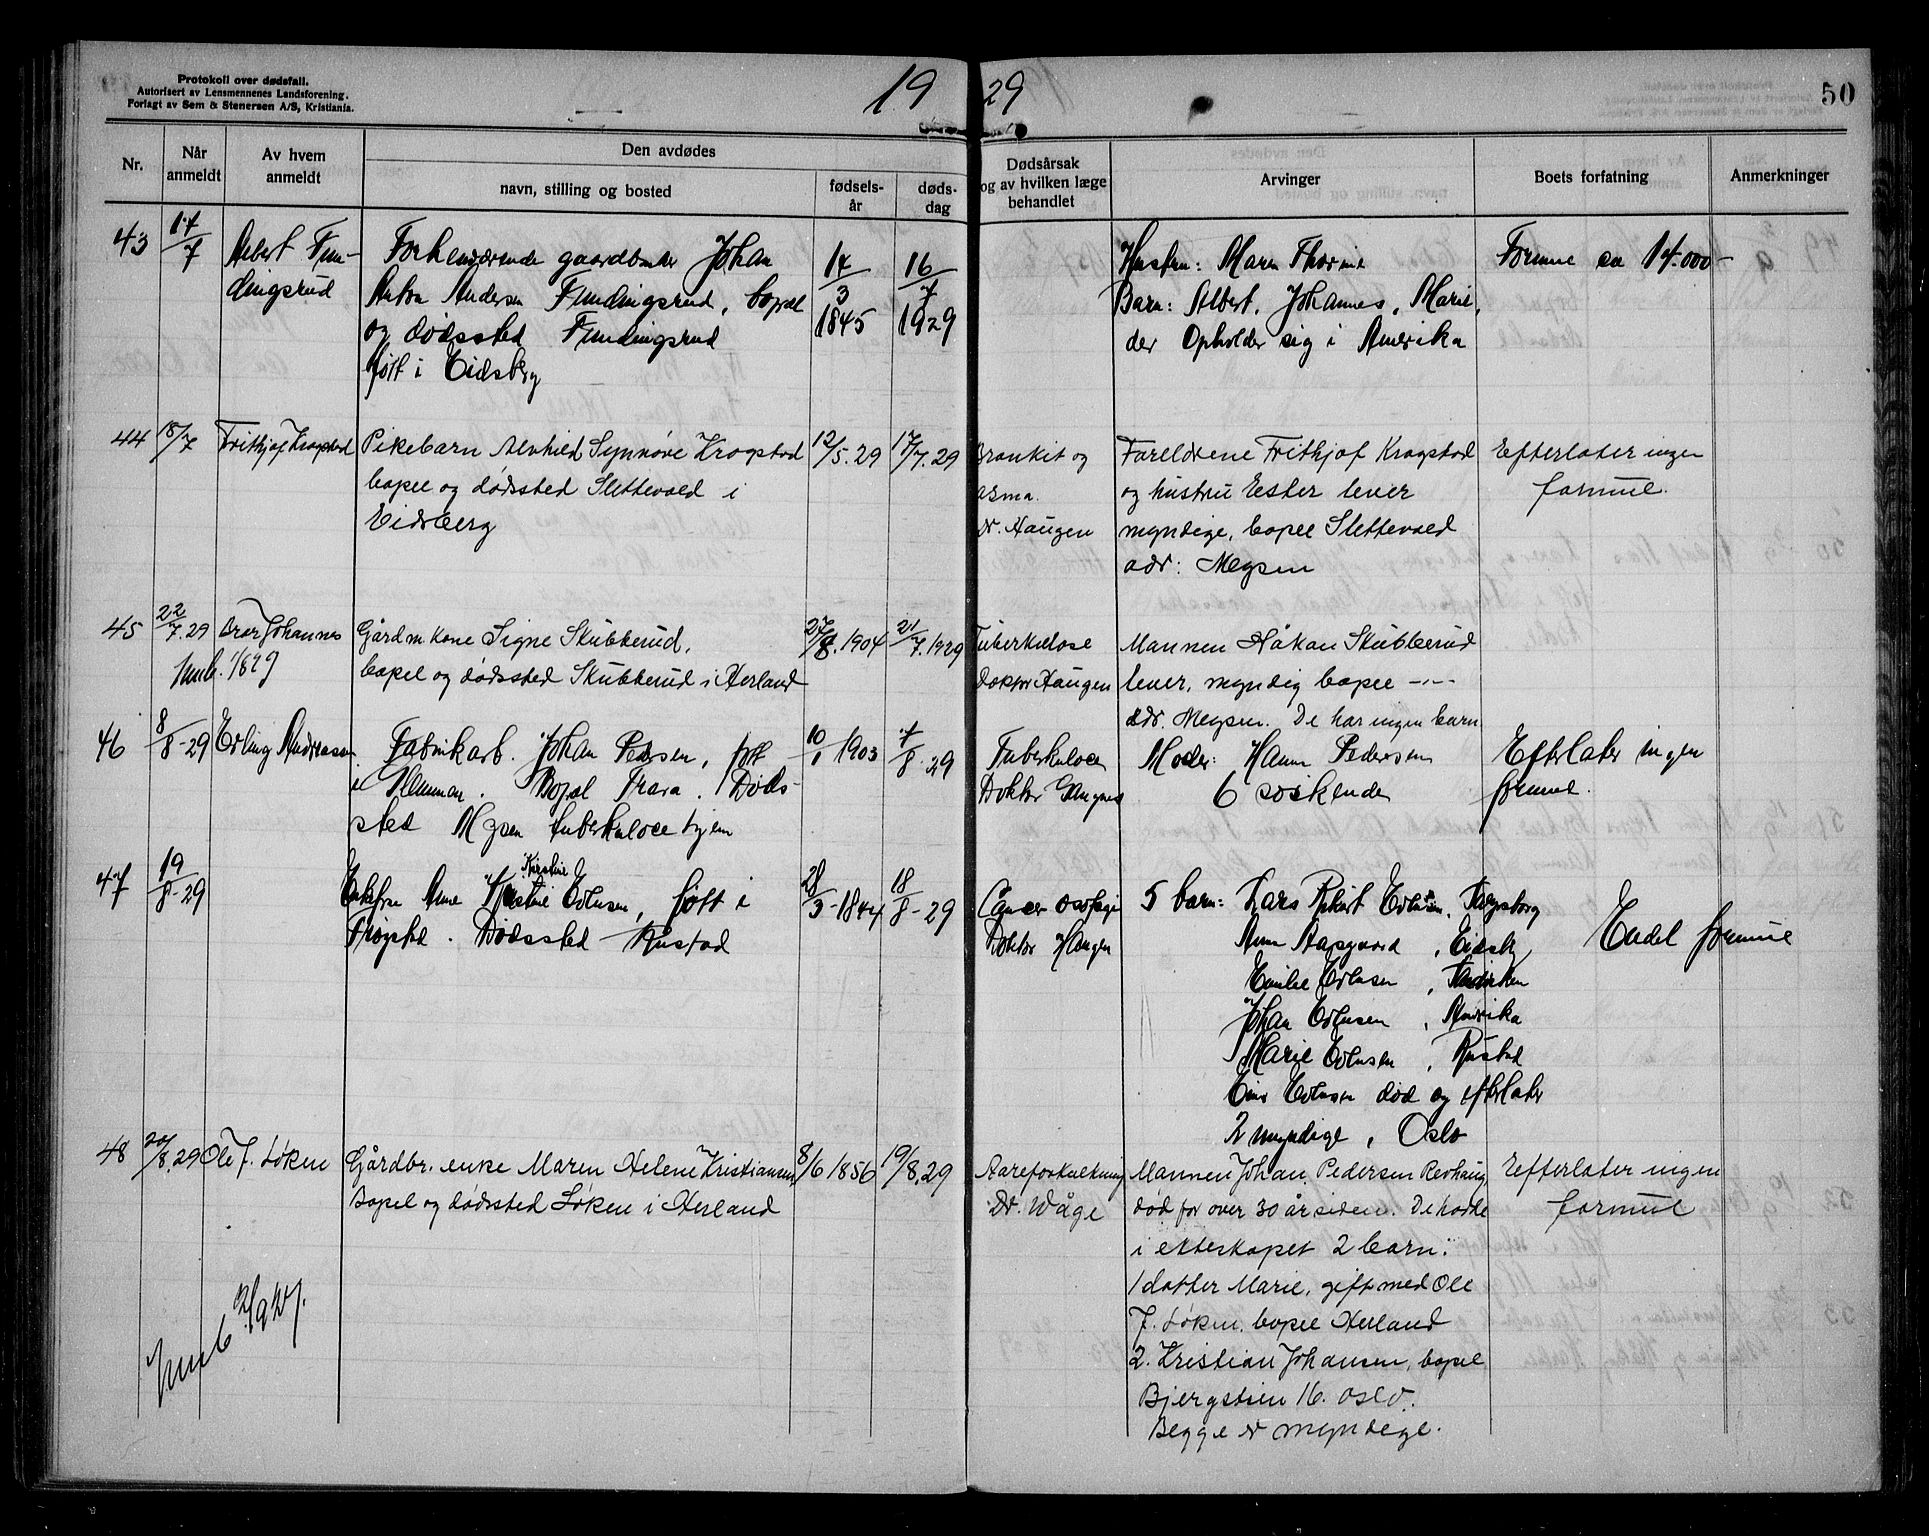 Protokoll over dødsfall.
Autorisert av Lensmennenes Landsforening.
Forlagt av Sem & Stenersen A/S, Kristiania.
19 29
50
Nr.
Når anmeldt
Av hvem anmeldt
Den avdødes
navn, stilling og bosted
fødsels-år
døds-dag
Dødsårsak og av hvilken læge behandlet
Arvinger
Boets forfatning
Anmerkninger
43
17/7
Albert Fun-
dingsrud
Forhenværende gaardbruker Johan
Anton Andersen Fundingsrud, bopæl
og dødssted Fundingsrud
født i Eidsberg
14/3 1845
16/7 1929
Hustru: Maren Thorine
Barn: Albert, Johannes, Marie,
der opholder sig i Amerika
Formue ca 14.000-
44
18/7
Frithjof Krogstad
Pikebarn Alvhild Synnøve Krogstad
bopel og dødssted Slettevold i
Eidsberg
12/5.29
17/7.29
Bronkit og
asma.
dr. Haugen
Foreldrene Frithjof Krogstad
og hustru Ester lever
myndige, bopel Slettevold
adr: Mysen
Efterlater ingen
formue.
45
22/7.29
Bror Johannes
Signe Skubberud,
Gårdm. kone
bopel og dødssted Skubberud i Herland
27/8.1904
21/7.1929
Tuberkulose
Doktor Haugen
Mannen Håkon Skubberud
lever, myndig bopel -"-
adr. Mysen. De har ingen barn
46
8/8-29
Erling Andreassen
Fabrikarb. Johan Pedersen, født
i Glemmen. Bopæl Trara. Døds-
sted Mysen tuberkulosehjem
10/1 1903
7/8-29
Tuberkulose
Doktor
Moder: Hanna Pedersen
6 søskende
Efterlater ingen
formue.
47
19/8-29
Enkefru Anne Kirstine Evensen, født i
Trøgstad. Dødssted Rustad
28/3-1844
18/8-29
Cancer
Doktor Haugen
5 barn: Lars
Anna Aasgaard, Eidsb
Emilie
Johan, Amerika
Marie, Rustad
død og efterlater
2 myndige, Oslo
Endel formue
48
20/8.29
Ole J. Løken
Gårdbr. enke Maren Helene Kristiansen
Bopel og dødssted Løken i Herland
8/6 1856
19/8.29
Aareforkalkning
Dr. Wåge
Mannen Johan Pedersen Revhaug,
død for over 30 år siden. De hadde
i ekteskapet 2 barn:
1 datter Marie, gift med Ole
J. Løken, bopel Herland
2. Kristian Johansen, bopel
Bjergstien 16. Oslo.
Begge er myndige.
Efterlater ingen
formue